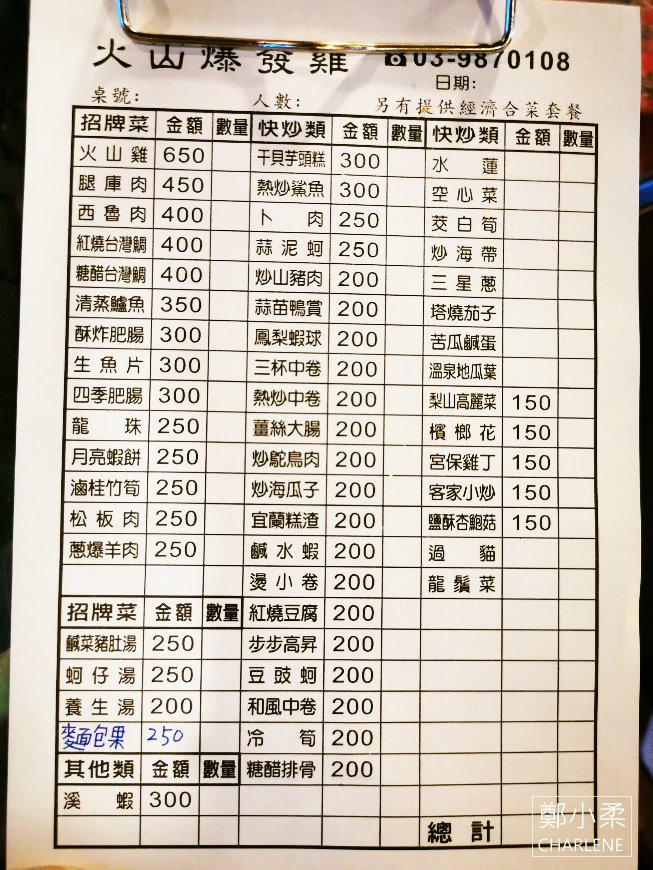 火山爆發雞 ☎03-9870108
日期:
桌號: 人數: 另有提供經濟合菜套餐
招牌菜 金額 數量 快炒類 金額 數量 快炒類 金額 數量
火山雞 650 干貝芋頭糕 300 水蓮
腿庫肉 450 熱炒鯊魚 300 空心菜
西魯肉 400 卜肉 250 茭白筍
紅燒台灣鯛 400 蒜泥蚵 250 炒海帶
糖醋台灣鯛 400 炒山豬肉 200 三星蔥
清蒸鱸魚 350 蒜苗鴨賞 200 塔燒茄子
酥炸肥腸 300 鳳梨蝦球 200 苦瓜鹹蛋
生魚片 300 三杯中卷 200 溫泉地瓜葉
四季肥腸 300 熱炒中卷 200 梨山高麗菜 150
龍珠 250 薑絲大腸 200 檳榔花 150
月亮蝦餅 250 炒鴕鳥肉 200 宮保雞丁 150
滷桂竹筍 250 炒海瓜子 200 客家小炒 150
松板肉 250 宜蘭糕渣 200 鹽酥杏鮑菇 150
蔥爆羊肉 250 鹹水蝦 200 過貓
燙小卷 200 龍鬚菜
招牌菜 金額 數量 紅燒豆腐 200
鹹菜豬肚湯 250 步步高昇 200
蚵仔湯 250 豆豉蚵 200
養生湯 200 和風中卷 200
麵包果 250 冷筍 200
其他類 金額 數量 糖醋排骨 200
溪蝦 300
總計
鄭小柔
CHARLENE